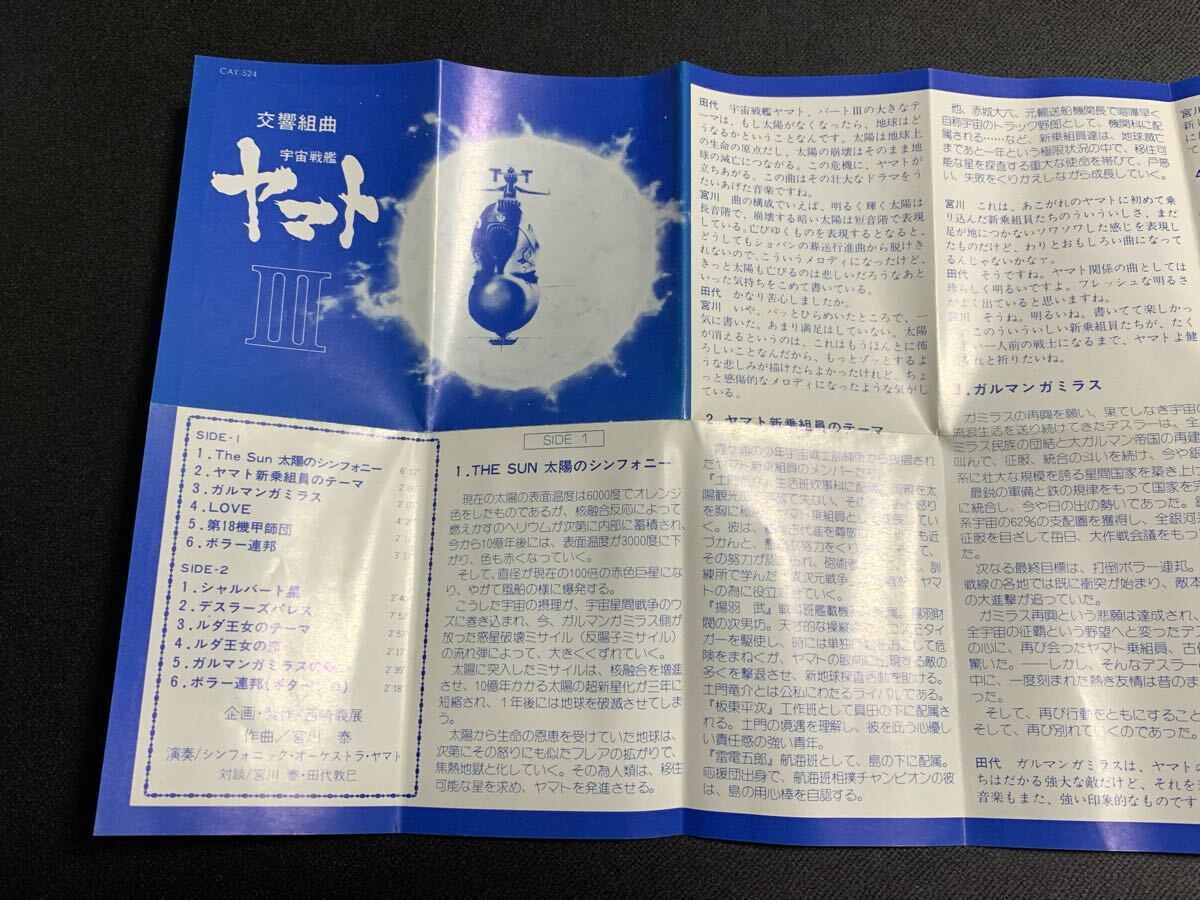 CAY 524
交響組曲
宇宙戦艦
ヤマト
III
SIDE-1
1.The Sun 太陽のシンフォニー 6'12"
2.ヤマト新乗組員のテーマ
3.ガルマンガミラス
4.LOVE
5.第18機甲師団
6.ボラー連邦
SIDE-2
1.シャルバート星 2'40"
2.デスラーズパレス 7'52"
3.ルダ王女のテーマ 2'57"
4.ルダ王女の恋 2'17"
5.ガルマンガミラスの 2'35"
6.ボラー連邦(ギター 2'18"
企画・製作/西崎義展
作曲/宮川 泰
演奏/シンフォニック・オーケストラ・ヤマト
対談/宮川 泰・田代敦巳
SIDE 1
1.THE SUN 太陽のシンフォニー
現在の太陽の表面温度は6000度でオレンジ
色をしたものであるが、核融合反応によって
燃えかすのヘリウムが次第に内部に蓄積され、
今から10億年後には、表面温度が3000度に下
がり、色も赤くなっていく。
そして、直径が現在の100倍の赤色巨星にな
り、やがて風船の様に爆発する。
こうした宇宙の摂理が、宇宙星間戦争のウ
ズに巻き込まれ、今、ガルマンガミラス側が
放った惑星破壊ミサイル(反陽子ミサイル)
の流れ弾によって、大きくくずれていく。
太陽に突入したミサイルは、核融合を増進
させ、10億年かかる太陽の超新星化が三年に
短縮され、1年後には地球を破滅させてしま
う。
太陽から生命の恩恵を受けていた地球は、
次第にその怒りにも似たフレアの拡がりで、
焦熱地獄と化していく。その為人類は、移住
可能な星を求め、ヤマトを発進させる。
田代 宇宙戦艦ヤマト、パートIIIの大きなテ
ーマは、もし太陽がなくなったら、地球はど
うなるかということなんです。太陽は地球上
の生命の原点だし、太陽の崩壊はそのまま地
球の滅亡につながる。この危機に、ヤマトが
立ちあがる。この曲はその壮大なドラマをう
たいあげた音楽ですね。
宮川 曲の構成でいえば、明るく輝く太陽は
長音階で、崩壊する暗い太陽は短音階で表現
している。亡びゆくものを表現するとなると、
どうしてもショパンの葬送行進曲から脱けき
れないので、こういうメロディになったけど、
きっと太陽も亡びるのは悲しいだろうなあと
いった気持ちをこめて書いている。
田代 かなり苦心しましたか。
宮川 いや、パッとひらめいたところで、一
気に書いた。あまり満足はしていない、太陽
が消えるというのは、これはもうほんとに怖
ろしいことなんだから、もっとゾッとするよ
うな悲しみが描けたらよかったけれど、ちょ
っと感傷的なメロディになったような気がし
ている。
2.ヤマト新乗組員のテーマ
霞ヶ浦の少年宇宙戦士訓練所から抜擢され
たヤマト新乗組員のメンバーたち。
『土門竜介』生活班炊事科に配属。両親を太
陽観光船の で失い、その 怒り
を胸に秘め ト乗組員として成長してい
く。彼は、 古代進を尊敬 も近
づかんと、 努力をくり
その努力が認められ、砲術 訓
練所で学んだ 次元戦争 ヤマ
トの為に役立たせていく。
『揚羽 武』戦斗班艦載機 属。揚羽財
閥の次男坊。天才的な操縦 コスモタイ
ガーを駆使し、時には単独行動をおこして危
険をまねくが、ヤマトの眼前に出現する敵の
多くを撃退させ、新地球探査活動を助ける。
土門竜介とは公私にわたるライバルである。
『板東平次』工作班として真田の下に配属さ
れる。土門の境遇を理解し、彼を庇う心優し
い責任感の強い青年。
『雷電五郎』航海班として、島の下に配属。
応援団出身で、航海班相撲チャンピオンの彼
は、島の用心棒を自認する。
他、赤城大六、元輸送船機関長で喧嘩早く
自称宇宙のトラック野郎として、機関科に配
属される……など、新乗組員達は、地球滅亡
まであと一年という極限状況の中で、移住可
能な星を探査する重大な使命を帯びて、戸惑
い、失敗をくりかえしながら成長していく。
宮川 これは、あこがれのヤマトに初めて乗
り込んだ新乗組員たちのういういしさ、まだ
足が地につかないソワソワした感じを表現し
たものだけど、わりとおもしろい曲になって
るんじゃないかなァ。
田代 そうですね。ヤマト関係の曲としては
珍らしく明るいですよ。フレッシュな明るさ
がよく出ていると思いますね。
宮川 そうね。明るいね。書いてて楽しかっ
このういういしい新乗組員たちが、たく
い一人前の戦士になるまで、ヤマトよ健
れと祈りたいね。
3.ガルマンガミラス
ガミラスの再興を願い、果てしなき宇宙の
流浪生活を送り続けてきたデスラーは、全
ミラス民族の団結と大ガルマン帝国の再建
叫んで、征服、統合の斗いを続け、今や銀
系に壮大な規模を誇る星間国家を築き上
最鋭の軍備と鉄の規律をもって国家を完
に統合し、今や日の出の勢いであった。
系宇宙の62%の支配圏を獲得し、全銀河
征服を目ざして毎日、大作戦会議をもっ
た。
次なる最終目標は、打倒ボラー連邦。
戦線の各地では既に衝突が始まり、敵本
の大進撃が迫っていた。
ガミラス再興という悲願は達成され、
全宇宙の征覇という野望へと変ったデス
の心に、再び会ったヤマト乗組員、古代
驚いた。——しかし、そんなデスラー
中に、一度刻まれた熱き友情は昔のま
った。
そして、再び行動をともにすること
そして、再び別れていくのであった。
田代 ガルマンガミラスは、ヤマトの
ちはだかる強大な敵だけど、それを
音楽もまた、強い印象的なものです
宮川
新し
に
て